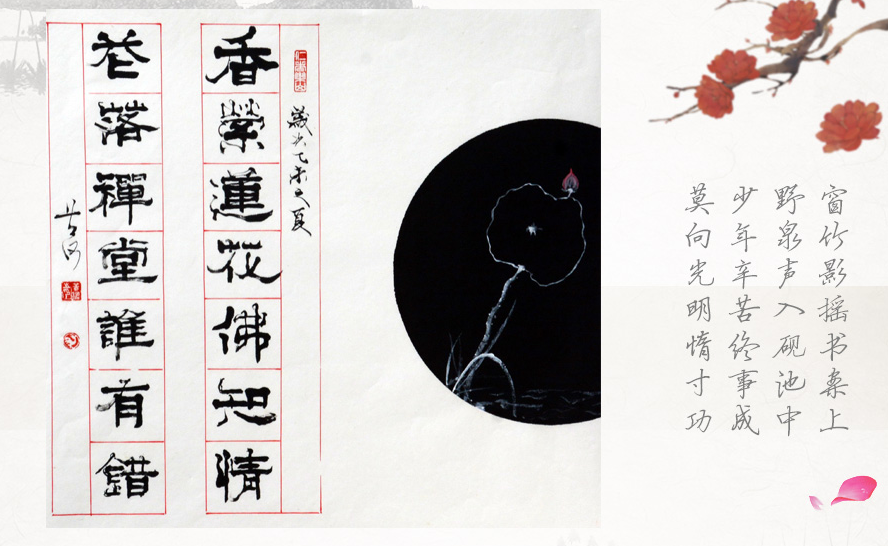 窗竹影摇书案上
野泉声入砚池中
少年辛苦终事成
莫向光明惰寸功
歲次乙未之夏
香縈蓮花佛知情
花落禪堂誰有錯